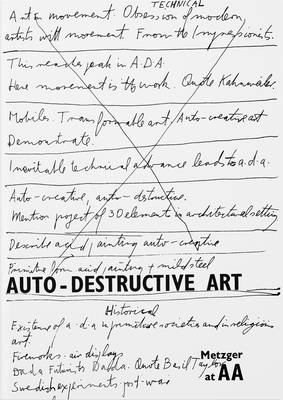 TECHNICAL
Art on movement. Obsession of modern
artists with movement From the Impressionists.
This reaches peak in A.D.A.
Here movement is the work. Quote Kahnweiler.
Mobiles. Transformable art, Auto-creative art
Demonstrate.
Inevitable technical advance leads to a.d.a.
Auto-creative, auto-destructive.
Mention project of 3D element in architectural setting
Describe acid painting auto-creative
Primitive form acid painting + mild steel
AUTO-DESTRUCTIVE ART
Historical
Existence of a.d.a in primitive societies and in religious
art.
Fireworks. air displays
Dada Futurists Dadda. Quote Basil Taylor
Swedish experiments post-war
Metzger
at AA